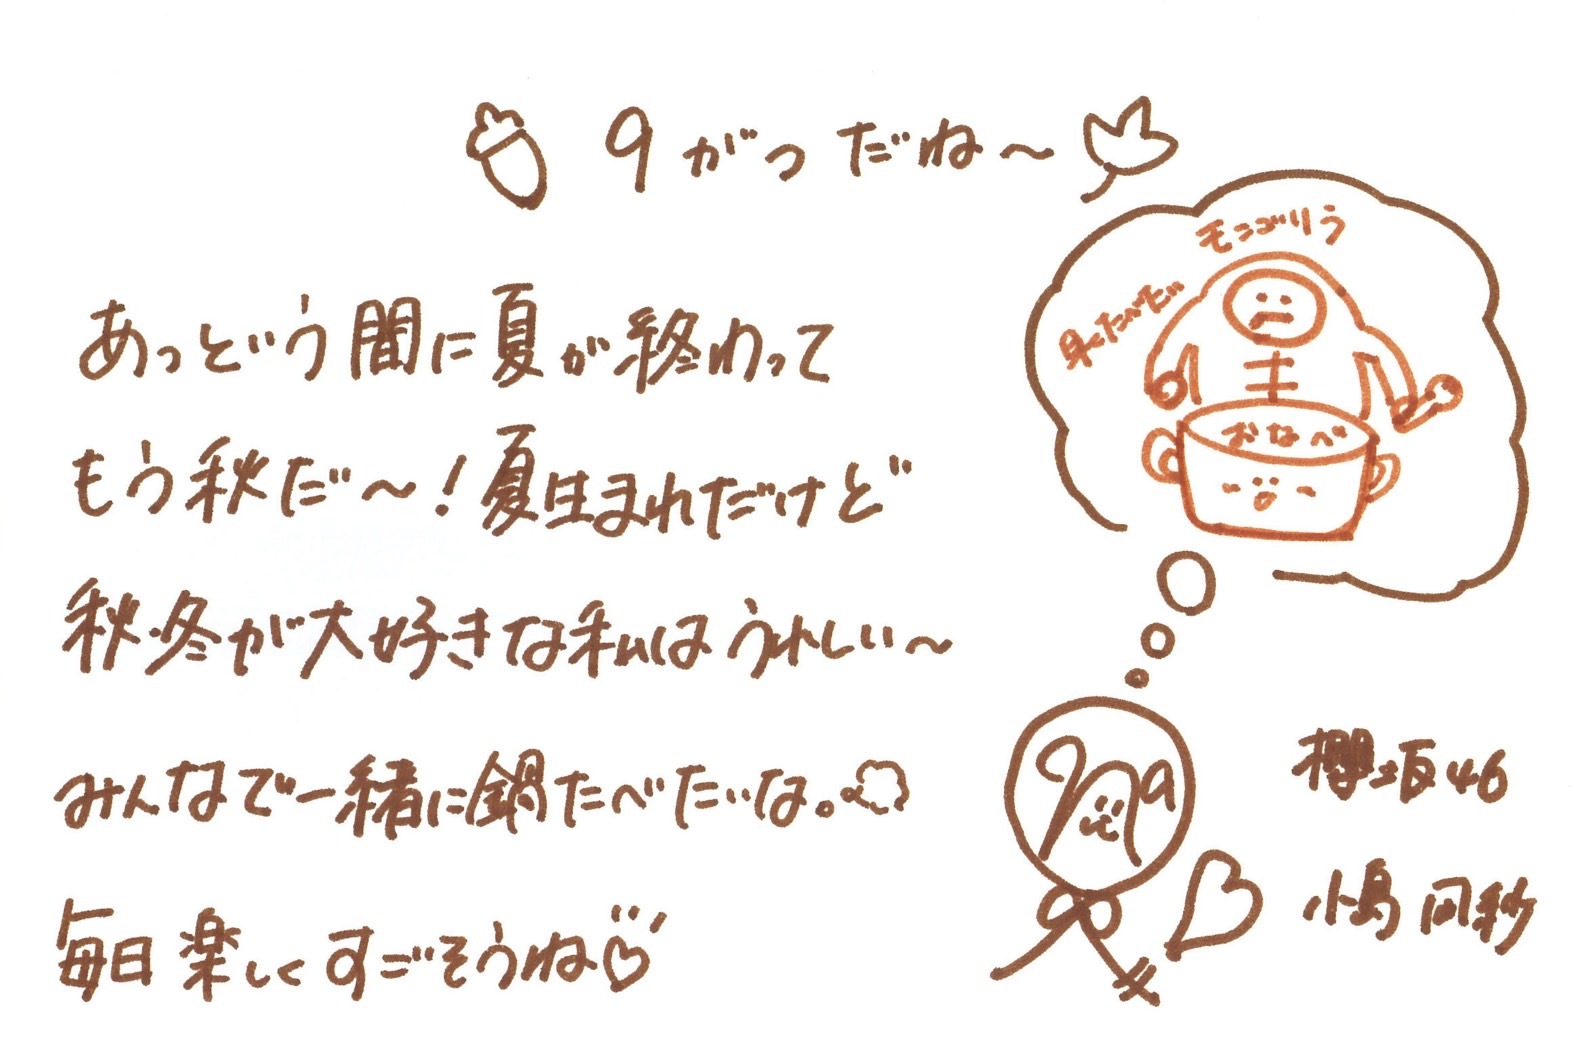 9がつだね〜
モンゴリラ
早くたべたい
おなべ
あっという間に夏が終わって
もう秋だ〜!夏生まれだけど
秋冬が大好きな私はうれしい〜
みんなで一緒に鍋たべたいな。
毎日楽しくすごそうね
櫻坂46
小島凪紗